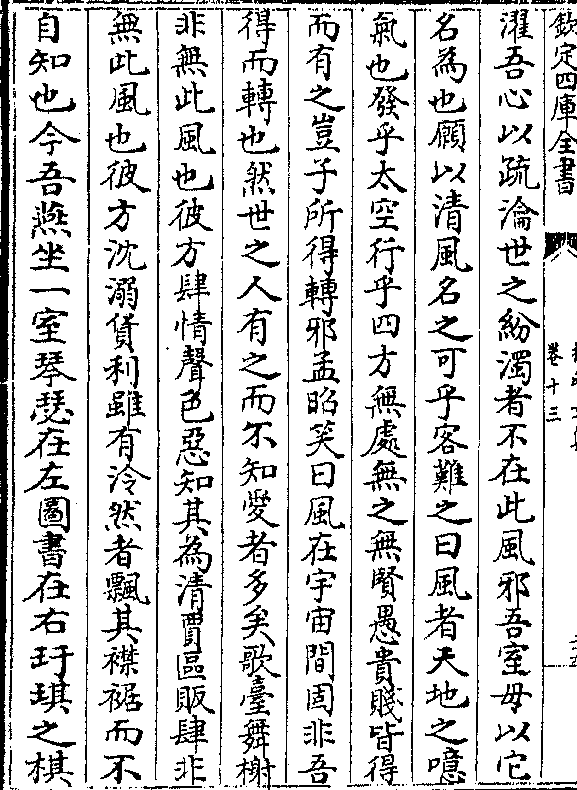 欽定四庫全書
卷十三
濯吾心以疏瀹世之紛濁者不在此風邪吾室毋以它
名為也願以清風名之可乎客難之曰風者天地之噫
氣也發乎太空行乎四方無處無之無賢愚貴賤皆得
而有之豈子所得轉邪孟昭笑曰風在宇宙間固非吾
得而轉也然世之人有之而不知愛者多矣歌臺舞榭
非無此風也彼方肆情聲色惡知其為清賈區販肆非
無此風也彼方沈溺貨利雖有泠然者飄其襟裾而不
自知也今吾燕坐一室琴瑟在左圖書在右玗琪之棋